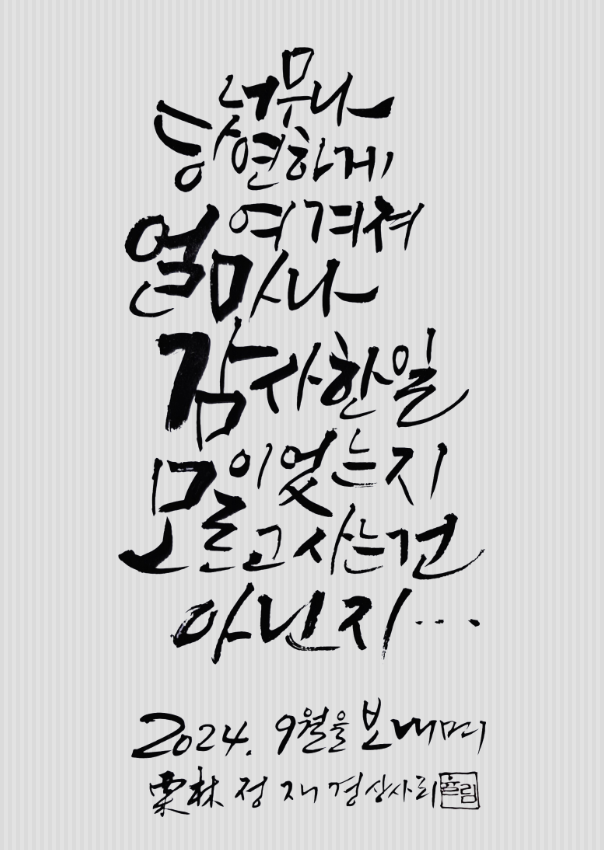 너무나
당연하게
여겨져
얼마나
감사한일
이었는지
모르고사는건
아닌지...
2024. 9월을 보내며
栗林 정재경상사리
율림